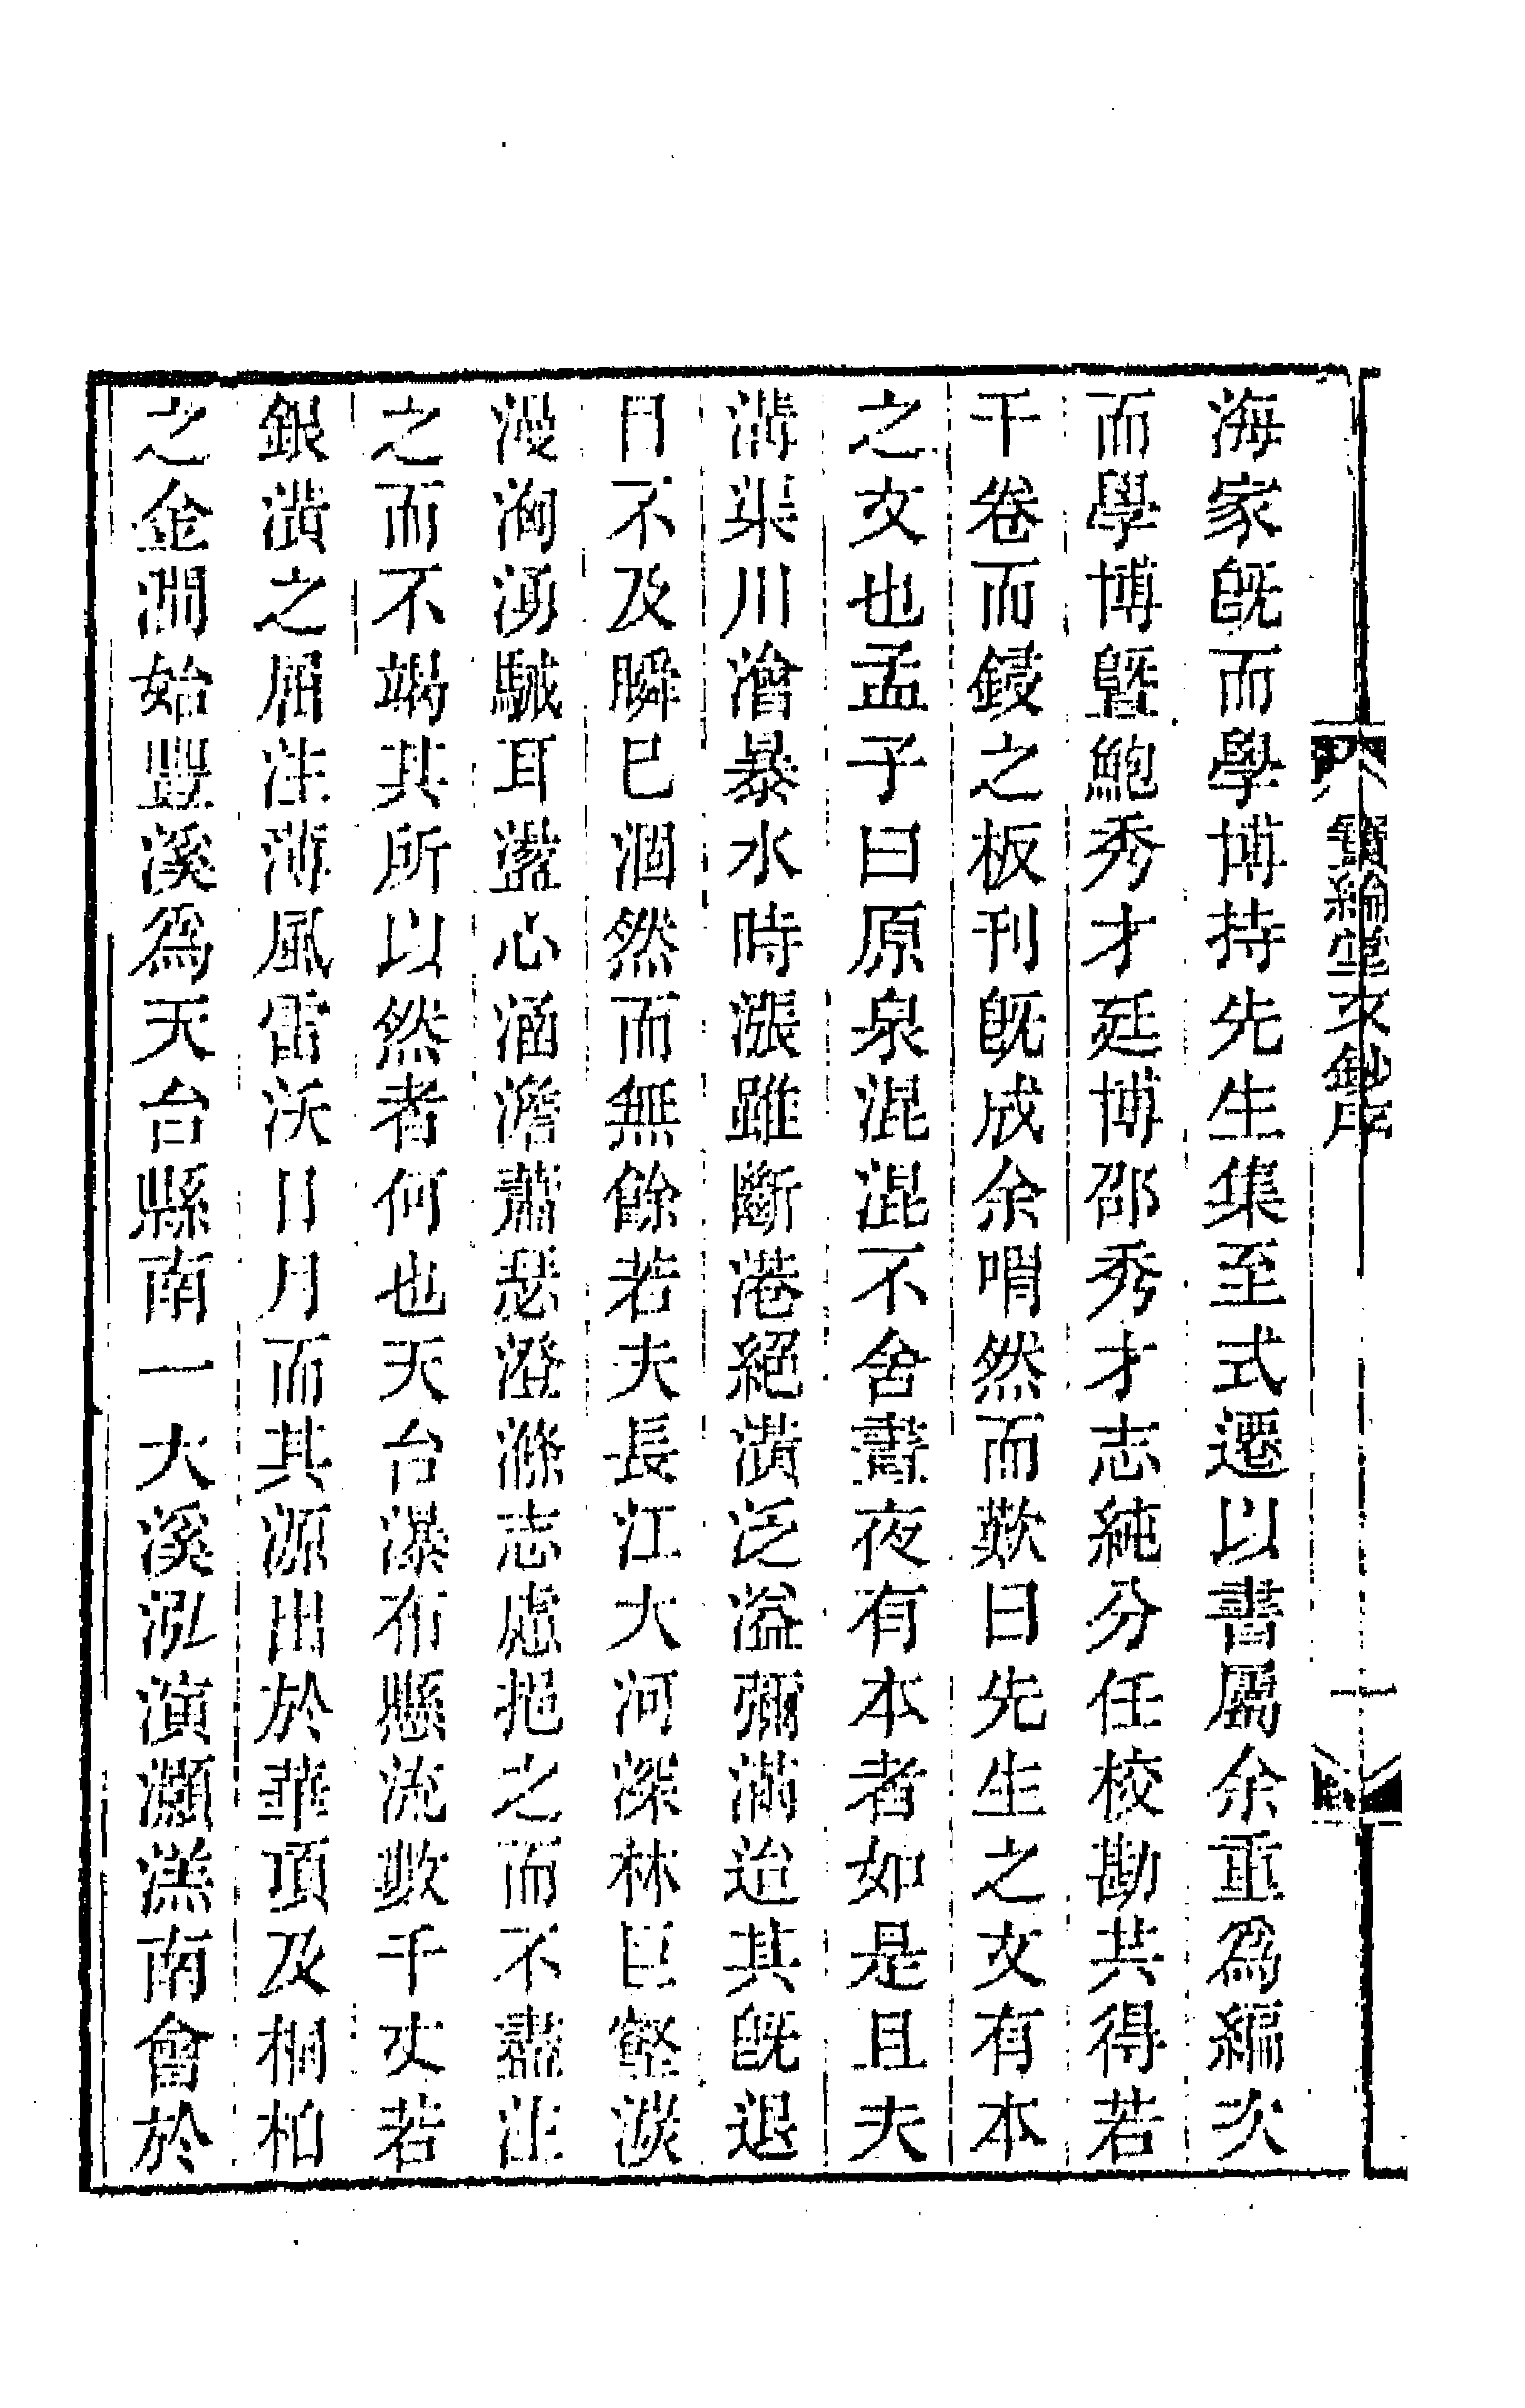 寶綸堂文鈔序 一
海家旣而學博持先生集至式遷以書屬余重爲編次
而學博曁鮑秀才廷博邵秀才志純分任校勘共得若
干卷而鋟之板刊旣成余喟然而歎曰先生之文有本
之文也孟子曰原泉混混不舍晝夜有本者如是且夫
溝渠川澮暴水時漲雖斷港絕潢泛溢彌滿迨其旣退
日不及瞬已涸然而無餘若夫長江大河深林巨壑淡
漫洶湧駴耳盪心涵澹蕭瑟澄滌志慮挹之而不盡注
之而不竭其所以然者何也天台瀑布懸流數千丈若
銀潢之屈注薄風雷沃日月而其源出於華頂及桐柏
之金澗始豐溪爲天台縣南一大溪泓演灝溔南會於